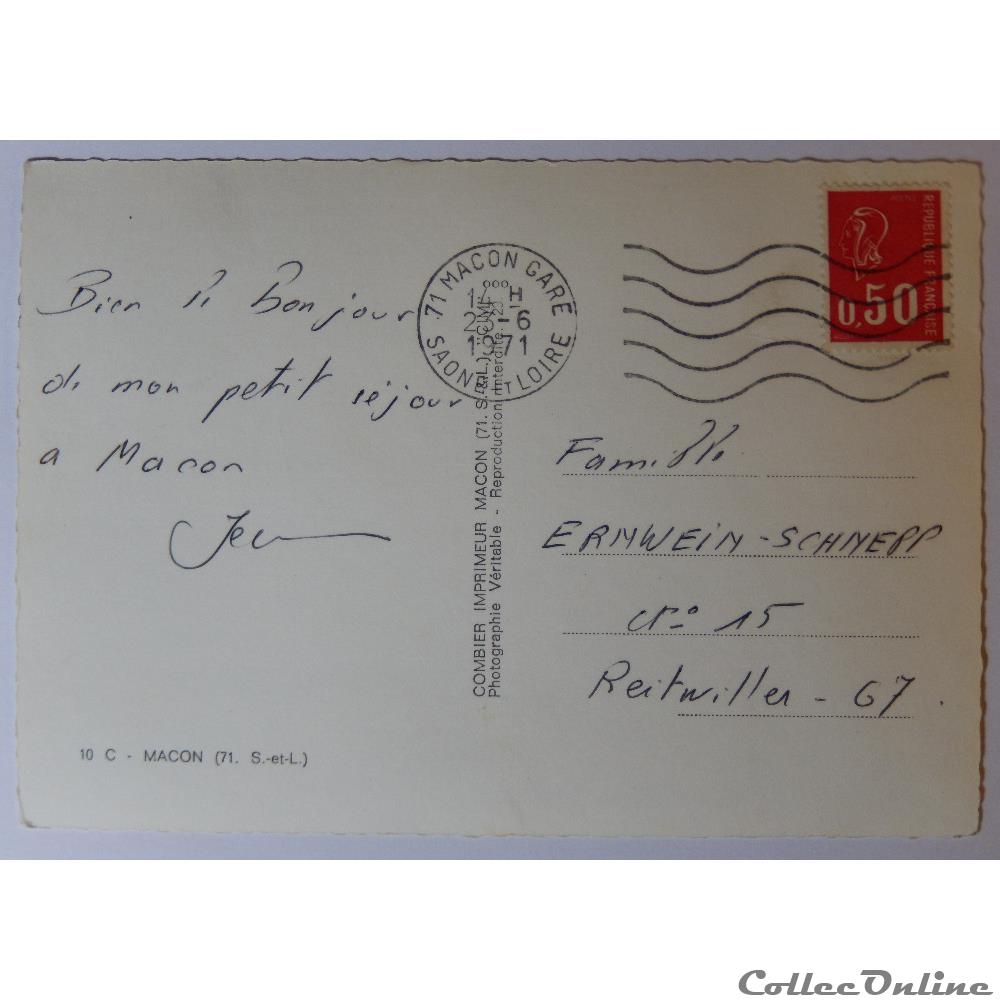 Bien le bonjour
de mon petit séjour
a Macon
Jean
71 MACON GARE
H
-6
1971
SAONE ET LOIRE
REPUBLIQUE FRANCAISE
POSTES
0,50
COMBIER IMPRIMEUR MACON (71. S.-et-L.) "CIM"
Photographie Véritable - Reproduction Interdite
Famille
ERNWEIN-SCHNEPP
N° 15
Reitwiller - 67.
10 C - MACON (71. S.-et-L.)
CollecOnline